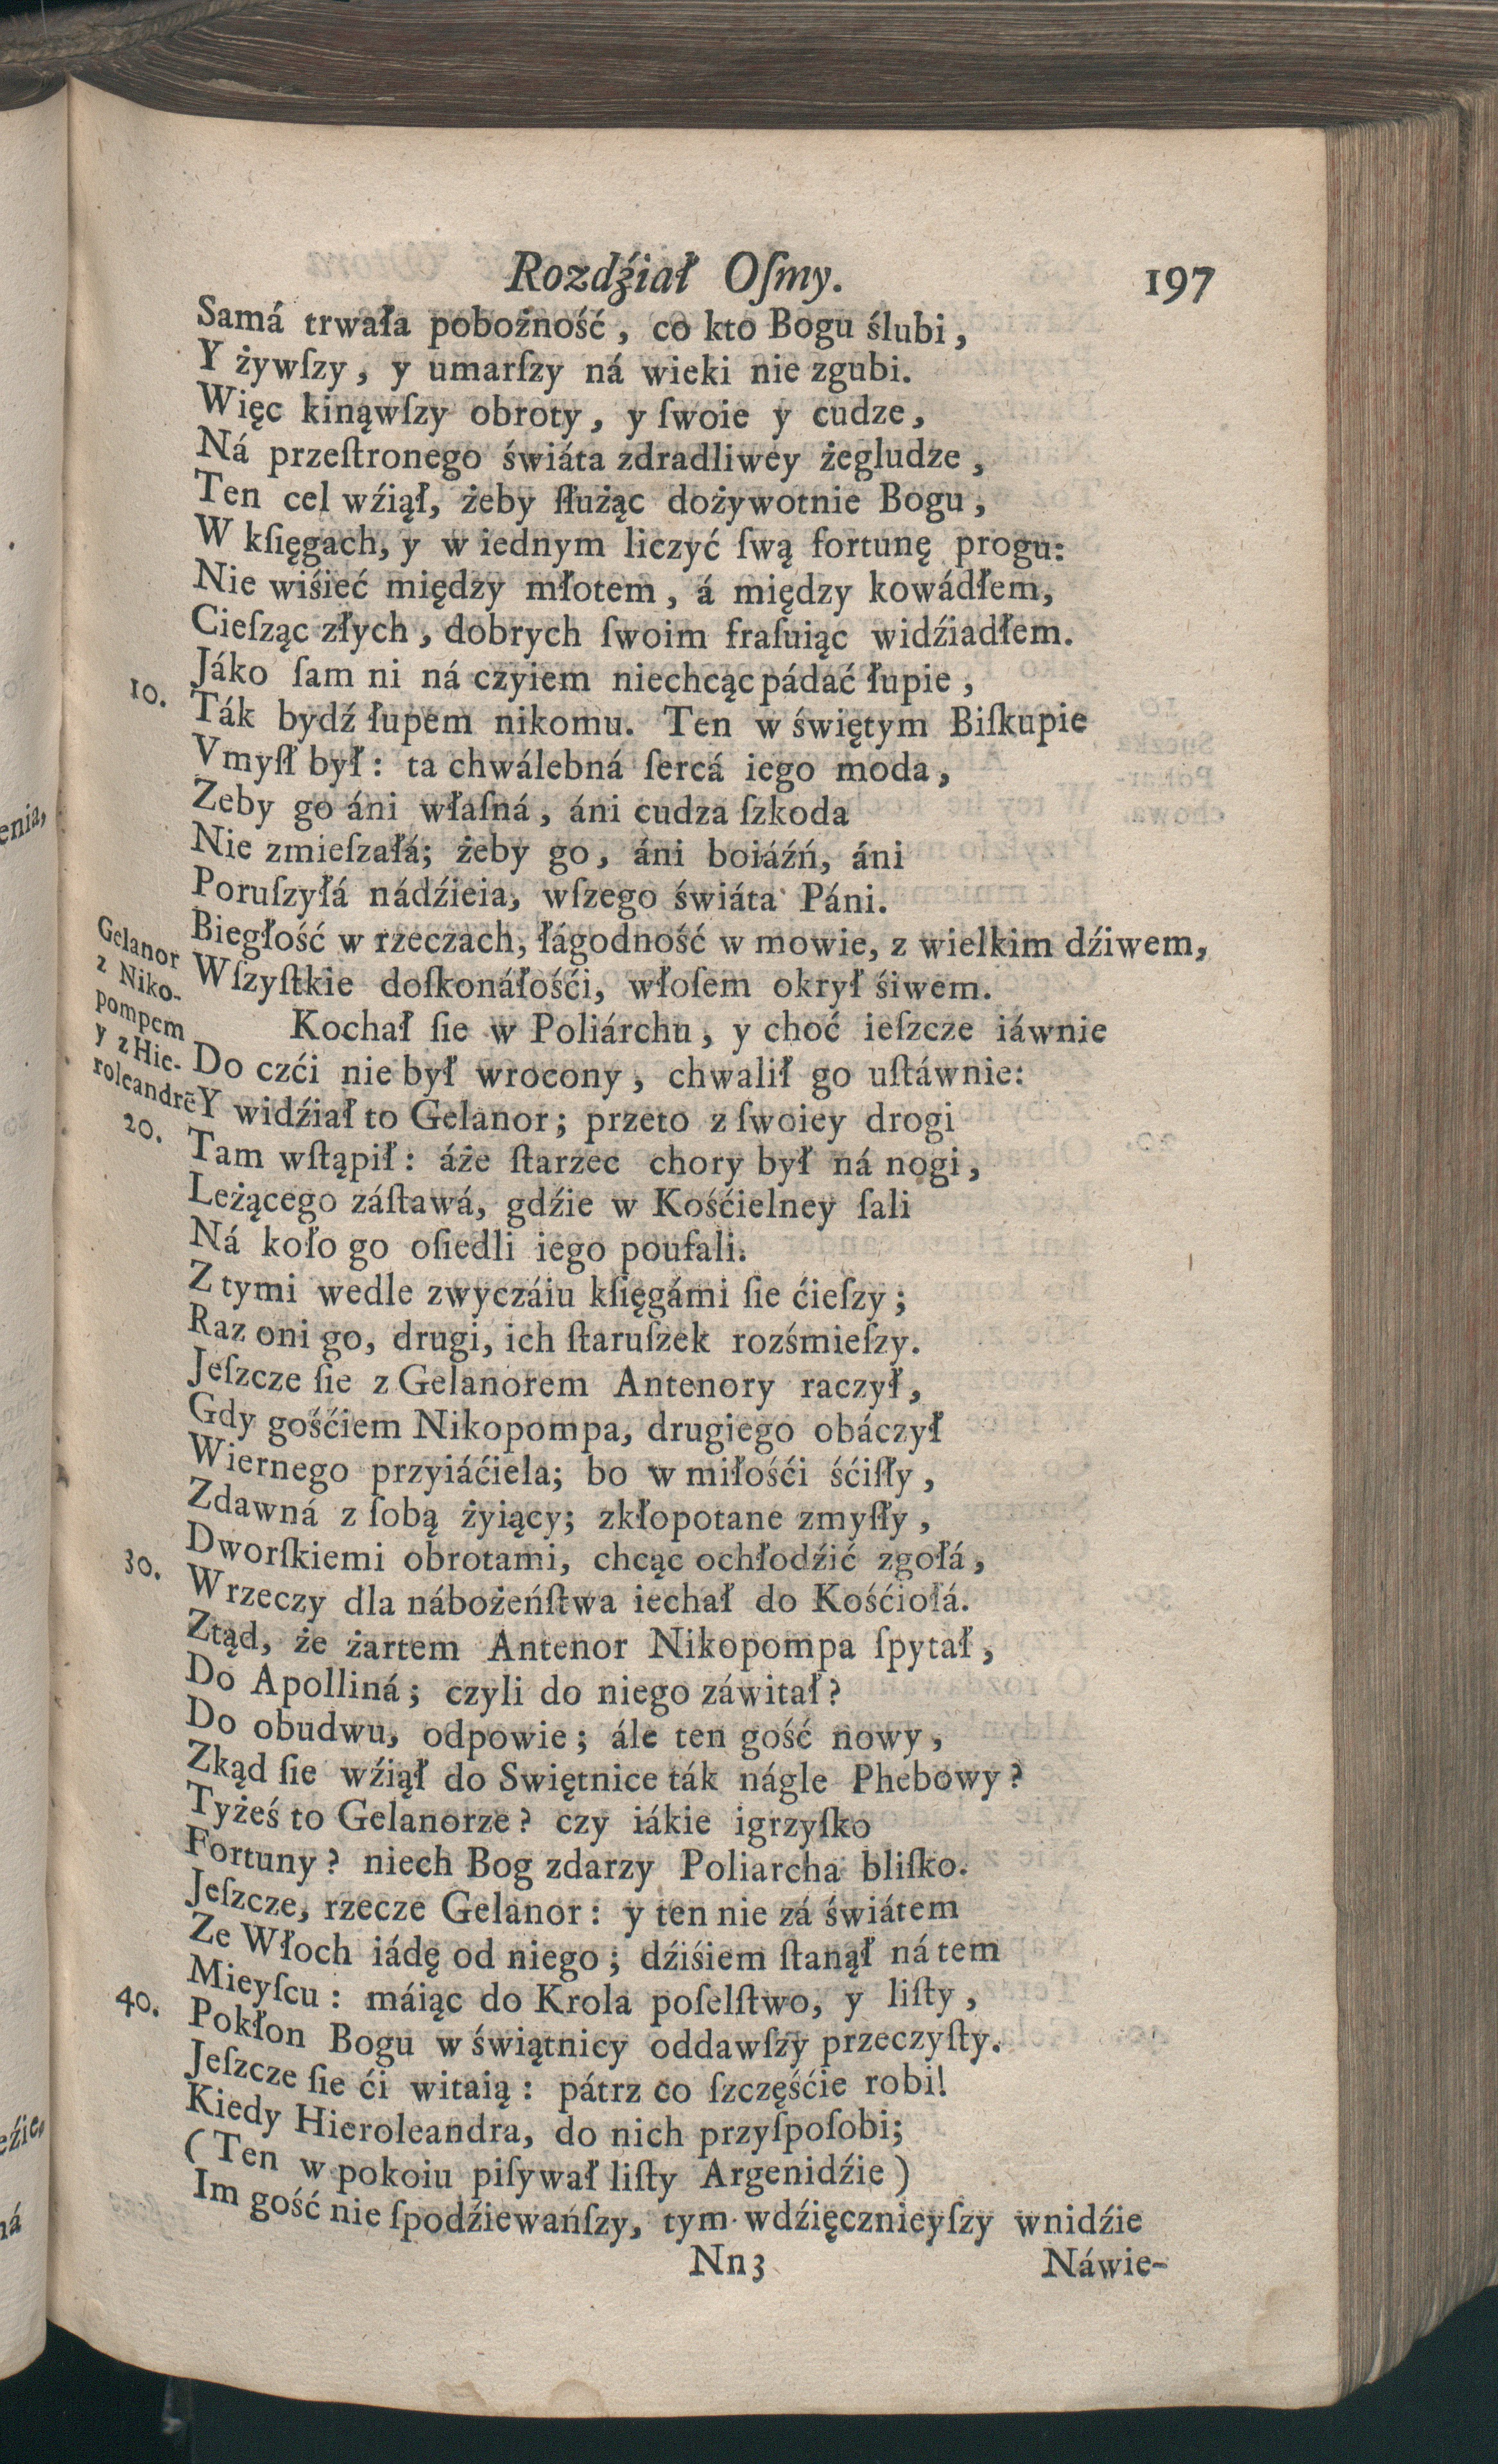 Rozdźiał Oſmy. 197
Samá trwała pobożność, co kto Bogu ślubi,
Y żywſzy, y umarſzy ná wieki nie zgubi.
Więc kinąwſzy obroty, y ſwoie y cudze,
Ná przeſtronego świáta zdradliwey żegludze,
Ten cel wźiął, żeby ſłużąc dożywotnie Bogu,
W kſięgach, y w iednym liczyć ſwą fortunę progu:
Nie wiśieć między młotem, á między kowádłem,
Cieſząc złych, dobrych ſwoim fraſuiąc widźiadłem.
Jáko ſam ni ná czyiem niechcąc pádać łupie,
10. Ták bydź łupem nikomu. Ten w świętym Biſkupie
Vmyſł był: ta chwálebná ſercá iego moda,
Zeby go áni właſná, áni cudza ſzkoda
Nie zmieſzałá; żeby go, áni boiáźń, áni
Poruſzyłá nádźieia, wſzego świáta Páni.
Biegłość w rzeczach, łágodność w mowie, z wielkim dźiwem,
Wſzyſtkie doſkonáłośći, włoſem okrył śiwem.
Gelanor
z Niko-
pompem
y z Hie-
roleandrē
Kochał ſie w Poliárchu, y choć ieſzcze iáwnie
Do czći nie był wrocony, chwalił go uſtáwnie:
Y widźiał to Gelanor; przeto z ſwoiey drogi
20. Tam wſtąpił: áże ſtarzec chory był ná nogi,
Leżącego záſtawá, gdźie w Kośćielney ſali
Ná koło go oſiedli iego poufali.
Z tymi wedle zwyczáiu kſięgámi ſie ćieſzy;
Raz oni go, drugi, ich ſtaruſzek rozśmieſzy.
Jeſzcze ſie z Gelanorem Antenory raczył,
Gdy gośćiem Nikopompa, drugiego obáczył
Wiernego przyiáćiela; bo w miłośći śćiſły,
Zdawná z ſobą żyiący; zkłopotane zmyſły,
Dworſkiemi obrotami, chcąc ochłodźić zgołá,
30. W rzeczy dla nábożeńſtwa iechał do Kośćiołá.
Ztąd, że żartem Antenor Nikopompa ſpytał,
Do Apolliná; czyli do niego záwitał?
Do obudwu, odpowie; ále ten gość nowy,
Zkąd ſie wźiął do Swiętnice ták nágle Phebowy?
Tyżeś to Gelanorze? czy iákie igrzyſko
Fortuny? niech Bog zdarzy Poliarcha bliſko.
Jeſzcze, rzecze Gelanor: y ten nie zá świátem
Ze Włoch iádę od niego; dźiśiem ſtanął ná tem
Mieyſcu: máiąc do Krola poſelſtwo, y liſty,
40. Pokłon Bogu w świątnicy oddawſzy przeczyſty.
Jeſzcze ſie ći witaią: pátrz co ſzczęśćie robi!
Kiedy Hieroleandra, do nich przyſpoſobi;
(Ten w pokoiu piſywał liſty Argenidźie)
Im gość nie ſpodźiewańſzy, tym wdźięcznieyſzy wnidźie
Nn3 Náwie-